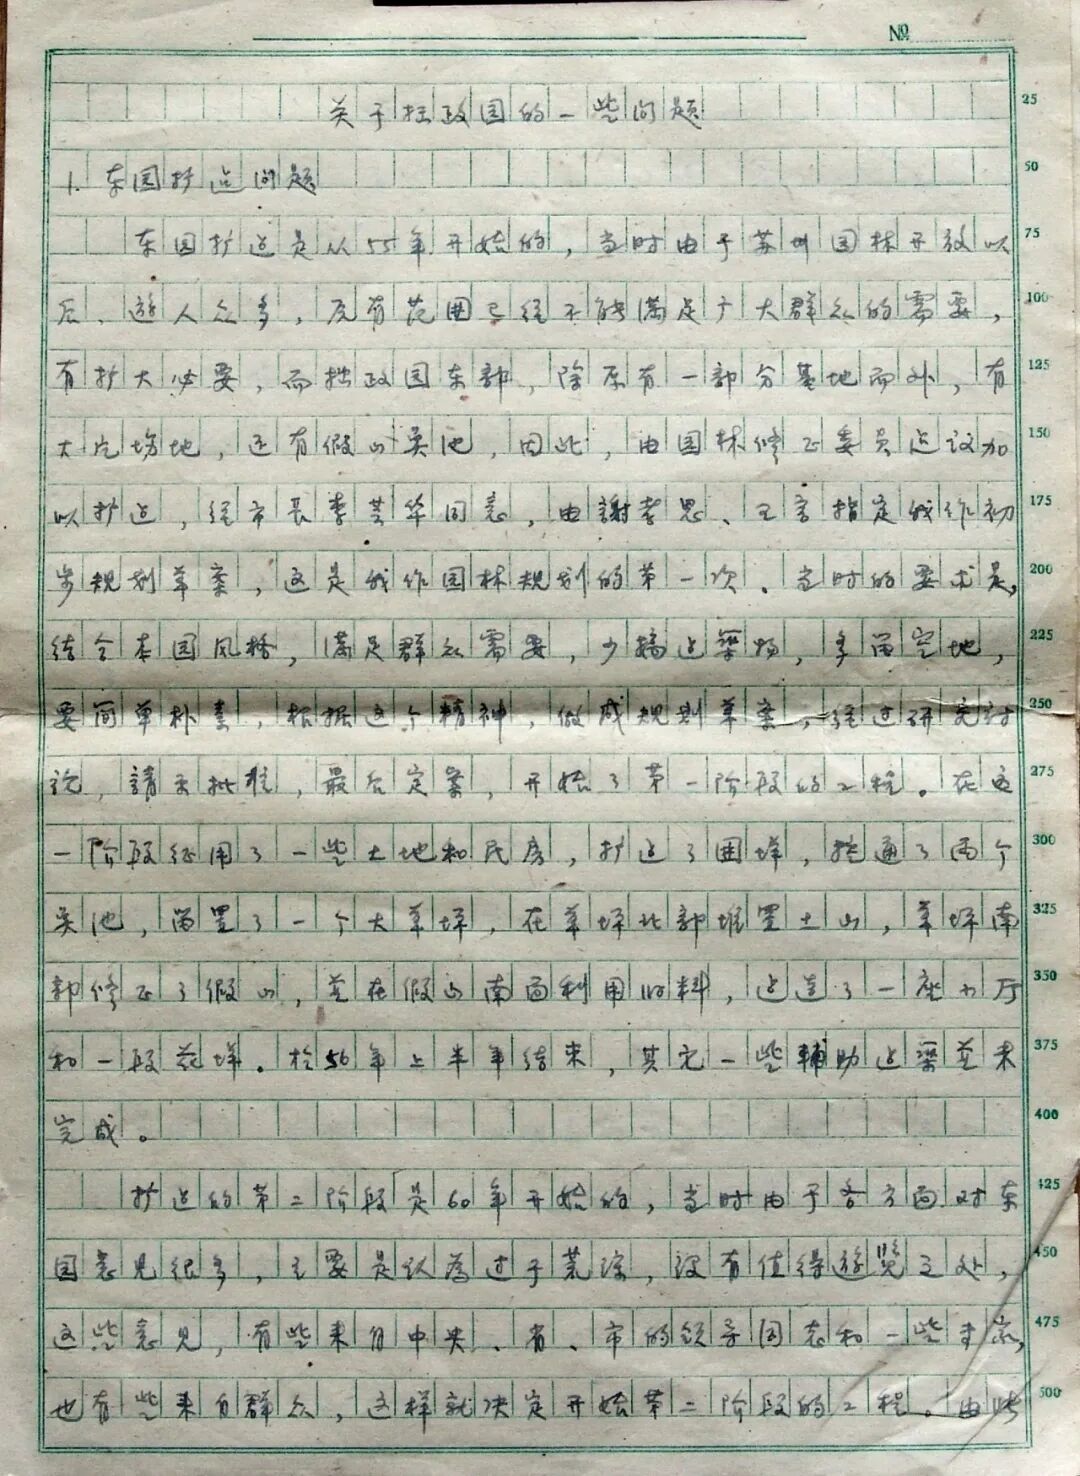 №
关于拙政园的一些问题
25
1. 东园扩建问题
50
东园扩建是从55年开始的，当时由于苏州园林开放以
75
后、遊人众多，原有范围已经不能满足广大群众的需要，
100
有扩大必要，而拙政园东部，除原有一部分基地而外，有
125
大片场地，还有假山吴池，因此，由园林修正委员建议加
150
以扩建，经市长李芸华同意，由謝孝思、王言指定我作初
175
步规划草案，这是我作园林规划的第一次、当时的要求是，
200
结合本园风格，满足群众需要，少搞建築物，多留空地，
225
要简单朴素，根据这个精神，做成规划草案，经过研究讨
250
论，請示批准，最后定案，开始了第一阶段的工程。在这
275
一阶段征用了一些土地和民房，扩建了围墙，挖通了两个
300
吴池，留置了一个大草坪，在草坪北部堆置土山，草坪南
325
部修正了假山，並在假山南面利用旧料，建造了一座小厅
350
和一段花墙。於56年上半年结束，其它一些輔助建築並未
375
完成。
400
扩建的第二阶段是60年开始的，当时由于各方面对东
425
园意见很多，主要是认为过于荒凉，没有值得遊览之处，
450
这些意见，有些来自中央、省、市的领导同志和一些专家，
475
也有些来自群众，这样就决定开始第二阶段的工程。由
500